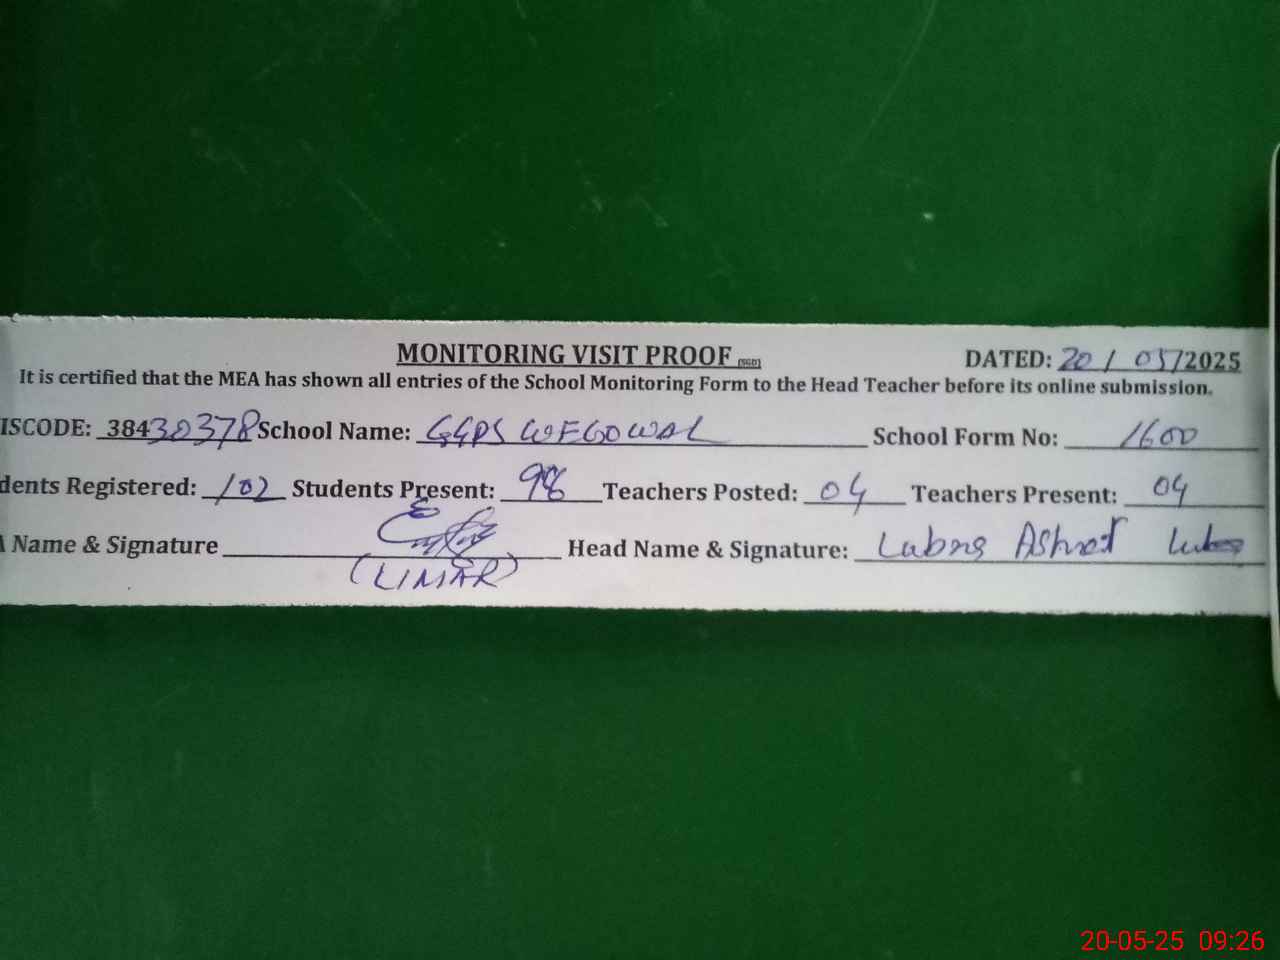 MONITORING VISIT PROOF (SGD) DATED: 20 / 05/2025
It is certified that the MEA has shown all entries of the School Monitoring Form to the Head Teacher before its online submission.
ISCODE: 38430378 School Name: GGPS WEGOWAL School Form No: 1600
dents Registered: 102 Students Present: 98 Teachers Posted: 04 Teachers Present: 04
Name & Signature Head Name & Signature: Lubna Ashraf
(UMAR)
20-05-25 09:26